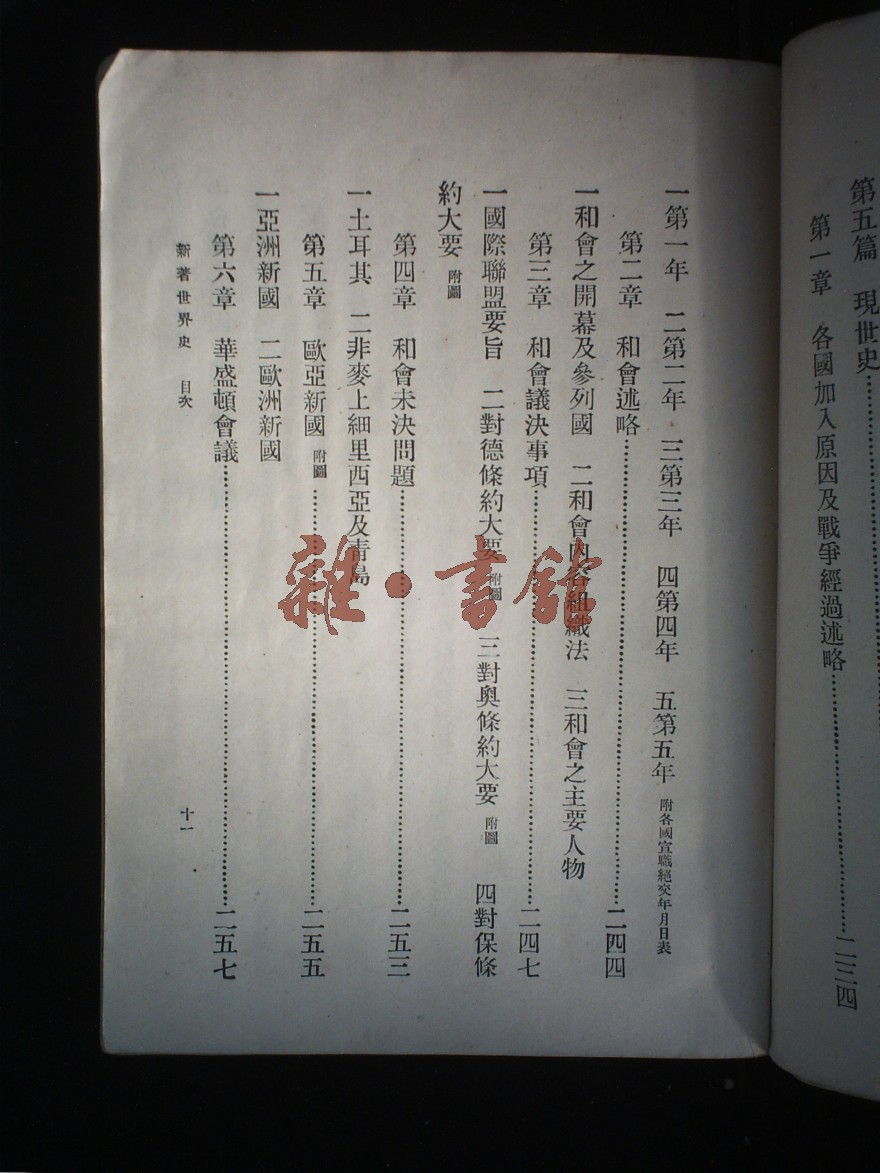 第五篇 現世史
第一章 各國加入原因及戰爭經過述略 二三四
一第一年 二第二年 三第三年 四第四年 五第五年 附各國宣職絕交年月日表
第二章 和會述略 二四四
一和會之開幕及參列國 二和會內容組織法 三和會之主要人物
第三章 和會議決事項 二四七
一國際聯盟要旨 二對德條約大要 附圖 三對奧條約大要 附圖 四對保條
約大要 附圖
第四章 和會未決問題 二五三
一土耳其 二非麥上細里西亞及靑島
第五章 歐亞新國 附圖 二五五
一亞洲新國 二歐洲新國
第六章 華盛頓會議 二五七
新著世界史 目次
十一
雜·書館